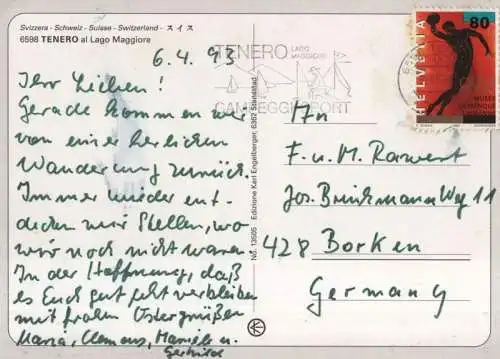 Svizzera - Schweiz - Suisse - Switzerland - スイス
6598 TENERO al Lago Maggiore
6.4.93
Ihr Lieben!
Gerade kommen wir
von einer herrlichen
Wanderung zurück.
Immer wieder ent-
decken wir Stellen, wo
wir noch nicht waren
In der Hoffnung, daß
es Euch gut geht verbleiben
mit frohen Ostergrüßen
Maria, Clemens, Mariele u.
Gertrud
No. 13505 - Edizione Karl Engelberger, 6362 Stansstad
TENERO LAGO MAGGIORE
CAMPEGGI SPORT
80
HELVETIA
MUSÉE OLYMPIQUE
An
F. u. M. Rarvert
Jos. Brinkmann Weg 11
428 Borken
Germany